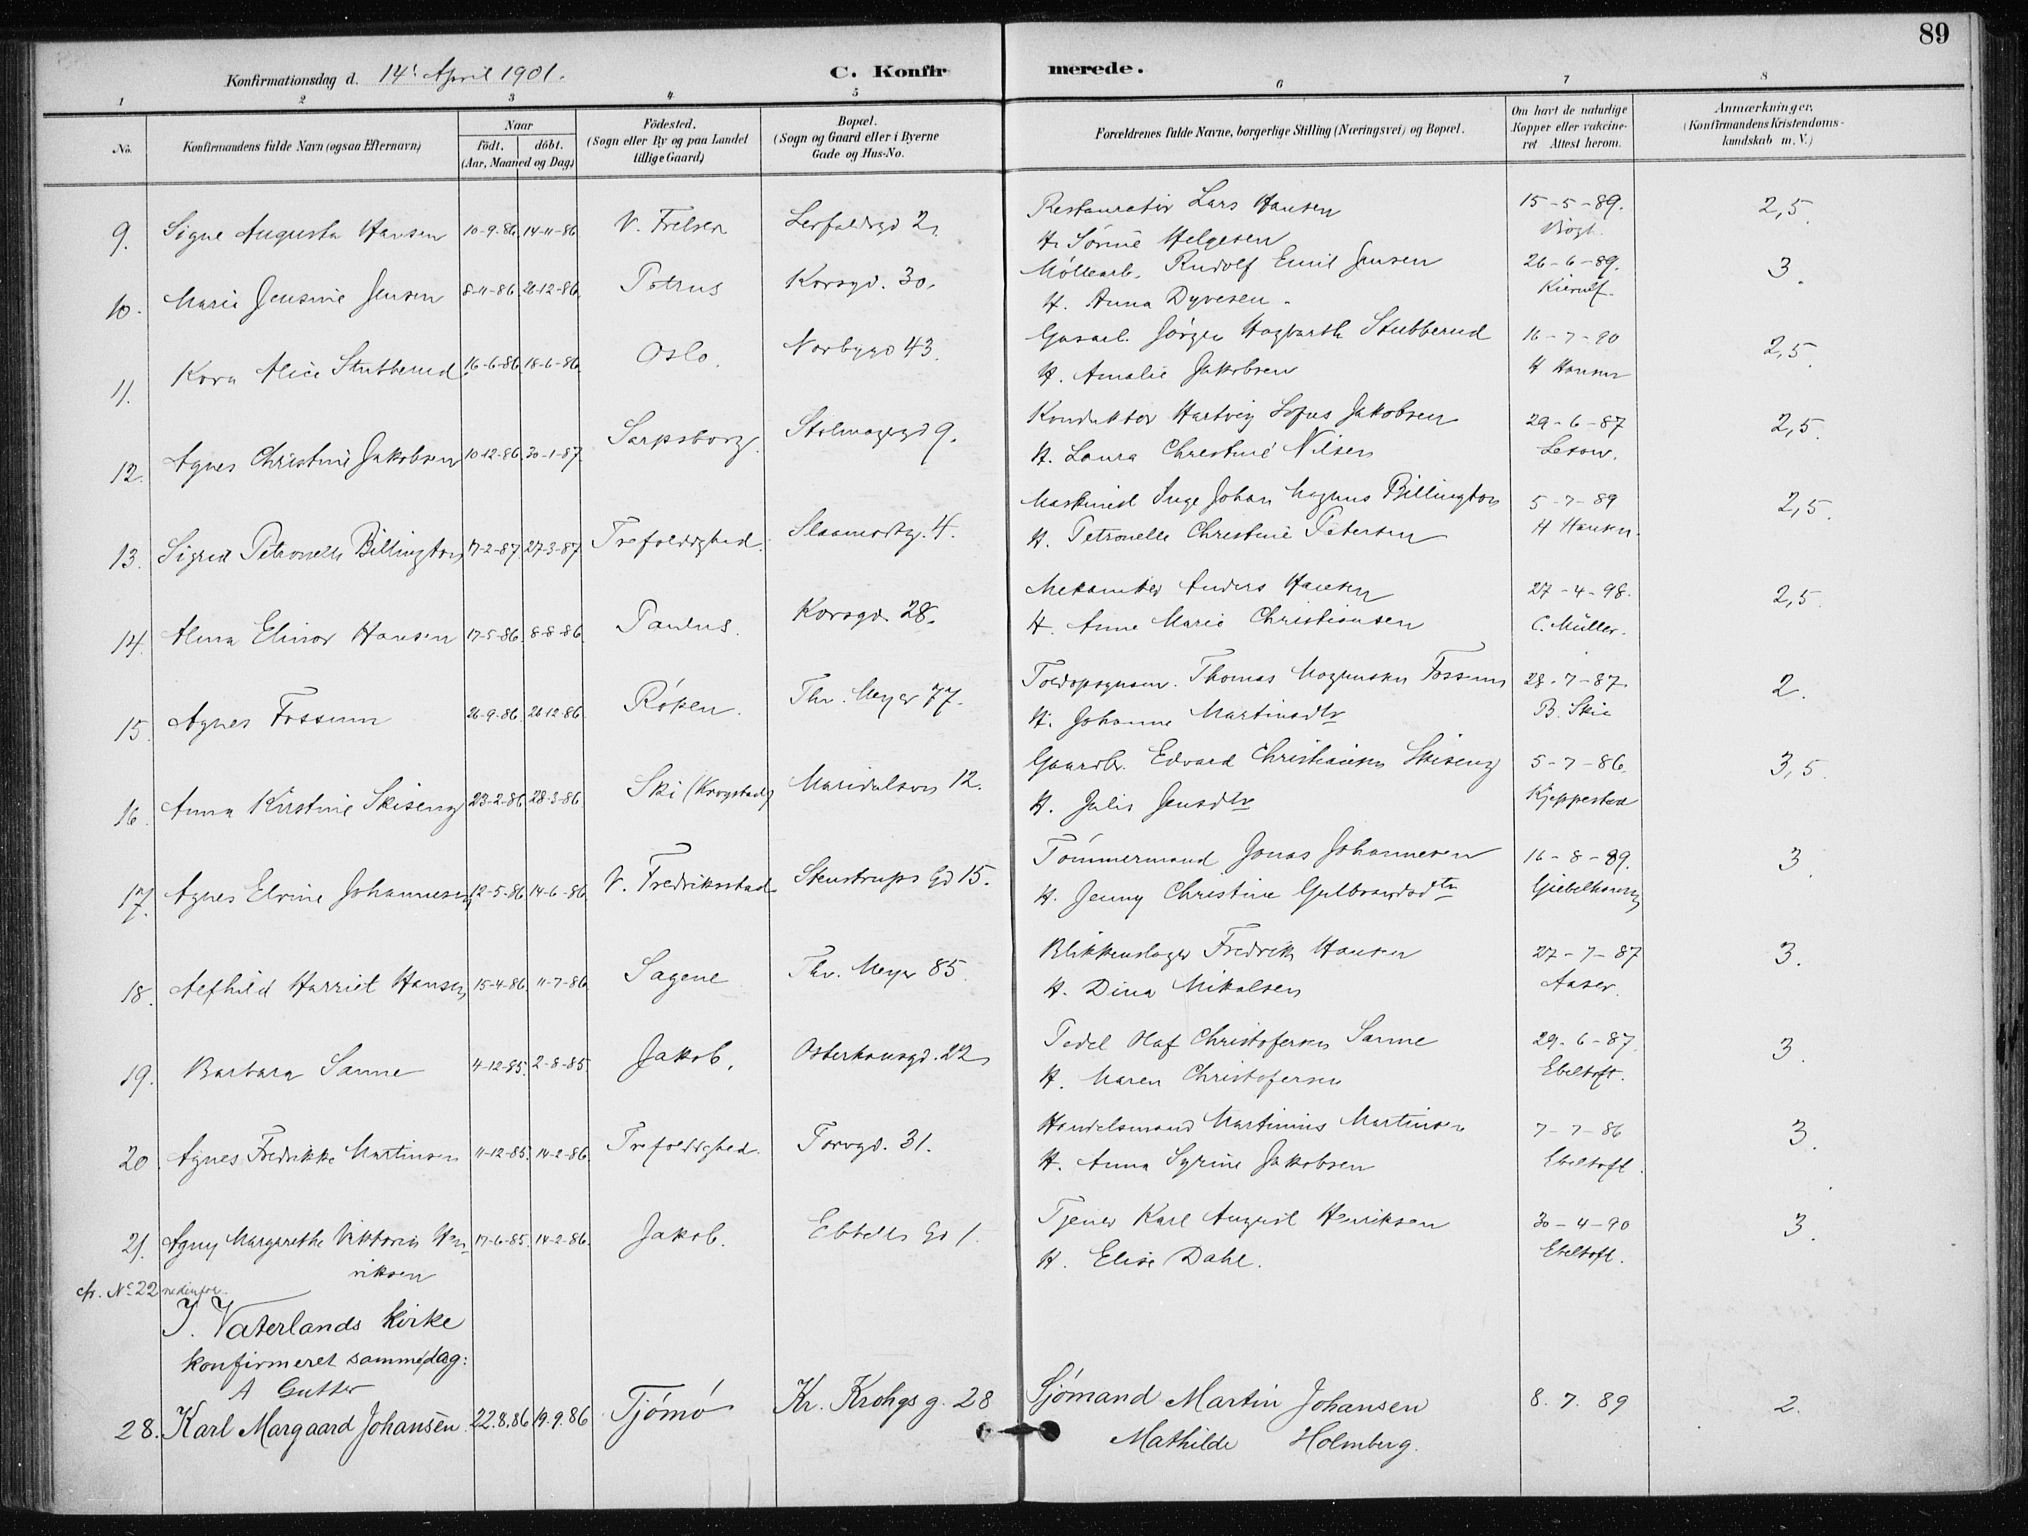 89
Konfirmationsdag d. 14' April 1901. C. Konfirmerede.
1 2 3 4 5 6 7 8
No. Konfirmandens fulde Navn (ogsaa Efternavn) Naar født. døbt. (Aar, Maaned og Dag) Fødested. (Sogn eller By og paa Landet tillige Gaard) Bopæl. (Sogn og Gaard eller i Byerne Gade og Hus-No. Forældrenes fulde Navne, borgerlige Stilling (Næringsvei) og Bopæl. Om havt de naturlige Kopper eller vakcineret Attest herom. Anmærkninger. (Konfirmandens Kristendomskundskab m. V.)
9. Signe Augusta Hansen 10-9-86. 14-11-86 V. Frelser Lerfaldsgd 2. Restauratør Lars Hansen 15-5-89. 2,5.
H. Sørine Helgesen Vogt.
10. Marie Jensine Jensen 8-11-86 26-12-86. Petrus Korsgd. 30. Møllearb. Rudolf Emil Jensen 26-6-89. 3.
H. Anna Dyvesen. Kierulf.
11. Kora Alice Stubberud 16-6-86 18-6-86. Oslo. Norbygd 43. Gasarb. Jørgen Hagbarth Stubberud 16-7-90 2,5.
H. Amalie Jakobsen H Hansen
12. Agnes Christine Jakobsen 10-12-86. 30-1-87. Sarpsborg. Stolmagergd 9. Konduktør Hartvig Sofus Jakobsen 29-6-87 2,5.
H. Laura Christine Nilsen
13. Sigrid Petronelle Billington 17-2-87 27-3-87 Trefoldighed. Slaamodtg. 4. Maskinist Inge Johan Magnus Billington 5-7-89 2,5.
H. Petronelle Christine Petersen H Hansen.
14. Alma Elinor Hansen 17-5-86. 8-8-86. Paulus. Korsgd. 28. Anders Hansen 27-4-98. 2,5.
H. Anne Marie Christiansen C. Müller.
15. Agnes Fossum 26-9-86. 26-12-86. Røken. Thv. Meyer 77. Toldopsynsm. Thomas Magnussen Fossum 28-7-87. 2.
H. Johanne Martinsdtr B. Skie
16. Anna Kirstine Skiseng 23-2-86 28-3-86 Ski (Kragstad) Maridalsvn 12. Gaardbr. Edvard Christiansen Skiseng 5-7-86. 3,5.
H. Julie Jensdtr Kjeppestad
17. Agnes Elvine Johannesen 12-5-86 14-6-86. V. Fredriksstad Stenstrups Gd 15. Tømmermand Jonas Johannesen 16-8-89. 3.
H. Jenny Christine Gulbrandsdtr Giebelhausen
18. Alfhild Harriet Hansen 15-4-86. 11-7-86. Sagene Thv. Meyer 85. Blikkenslager Fredrik Hansen 27-7-87 3.
H. Dina Mikalsen Aaser.
19. Barbara Sanne 4-12-85. 2-8-85. Jakob. Osterhausgd. 22 Olaf Christofersen Sanne 29-6-87. 3.
H. Maren Christofersen Ebeltoft.
20. Agnes Fredrikke Martinsen 11-12-85. 14-2-86. Trefoldighed. Torvgd. 31. Handelsmand Martinius Martinsen 7-7-86 3.
H. Anna Syrine Jakobsen Ebeltoft.
21. Agny Margrethe Viktoria Hen- 17-6-85. 14-2-86. Jakob. Ebbells Gd 1. Tjener Karl August Henriksen 30-4-90 3.
riksen H. Elise Dahl. Ebeltoft.
cfr. No 22 nedenfor.
I. Vaterlands Kirke
konfirmeret samme dag:
A Gutter
28. Karl Margaard Johansen. 22.8.86 19.9.86 Tjømø Kr. Krohgs g. 28 Sjømand Martin Johansen 8.7.89 2.
Mathilde Holmberg.